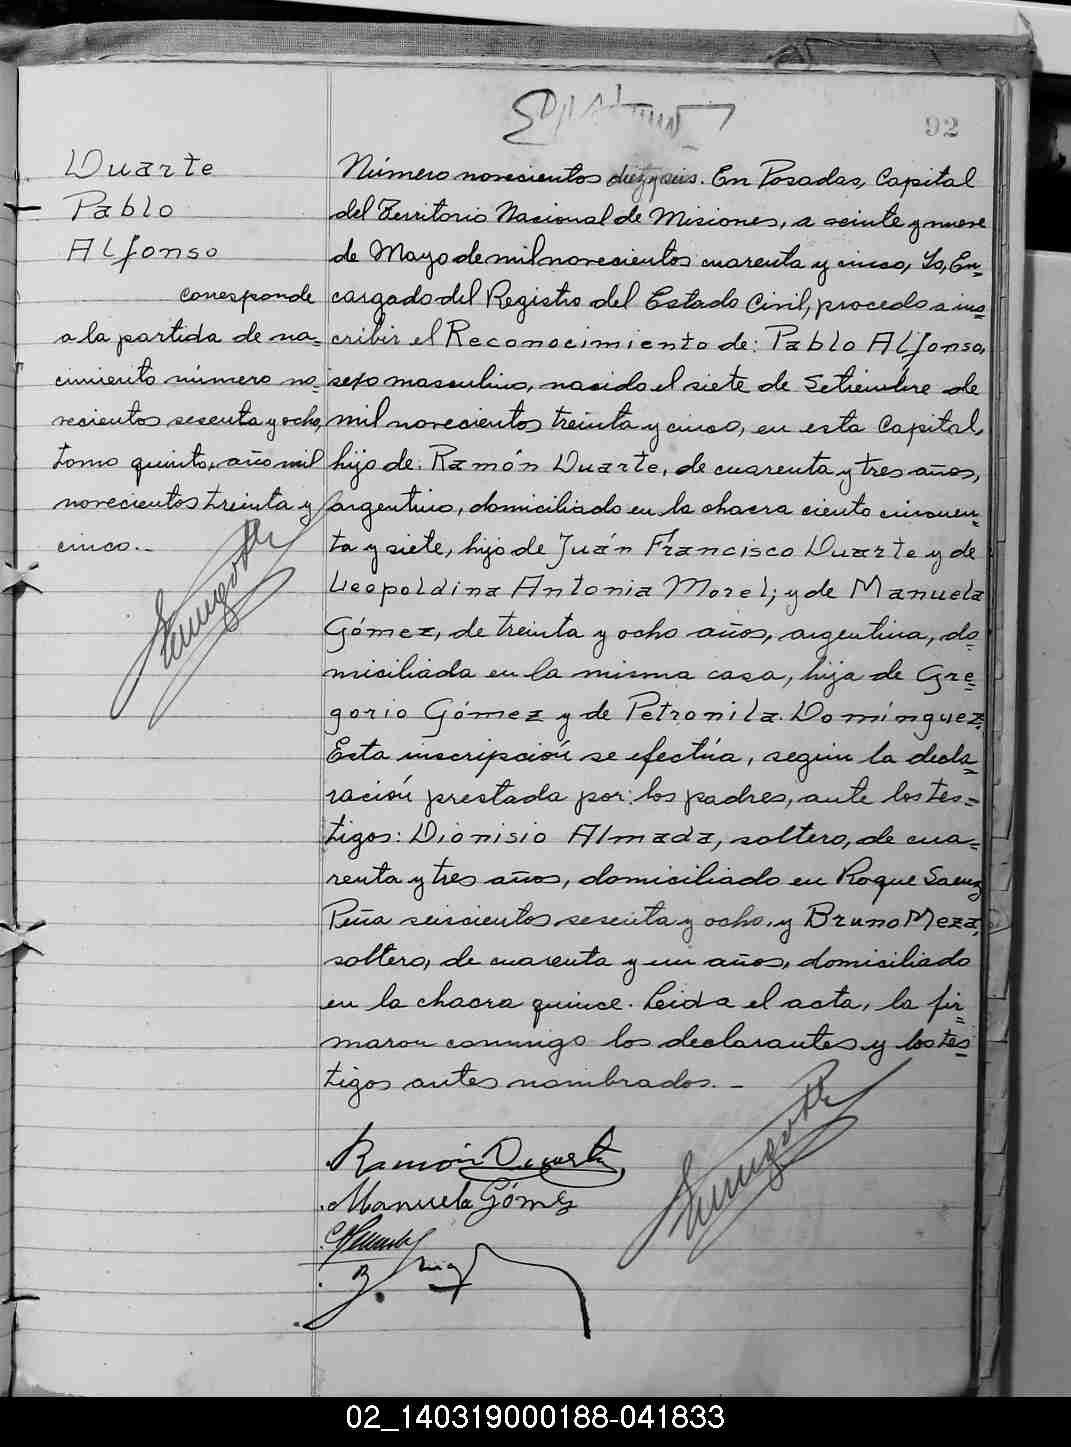 92
Duarte
Pablo
Alfonso
corresponde
a la partida de na=
cimiento número no=
vecientos sesenta y ocho,
tomo quinto, año mil
novecientos treinta y
cinco.-
Número novecientos diez y seis. En Posadas, Capital
del Territorio Nacional de Misiones, a veinte y nueve
de Mayo de mil novecientos cuarenta y cinco, Yo, En=
cargado del Registro del Estado Civil, procedo a ins=
cribir el Reconocimiento de: Pablo Alfonso,
sexo masculino, nacido el siete de Setiembre de
mil novecientos treinta y cinco, en esta Capital,
hijo de: Ramón Duarte, de cuarenta y tres años,
argentino, domiciliado en la chacra ciento cincuen=
ta y siete, hijo de Juán Francisco Duarte y de
Leopoldina Antonia Morel; y de Manuela
Gómez, de treinta y ocho años, argentina, do=
miciliada en la misma casa, hija de Gre=
gorio Gómez y de Petronila Domínguez.
Esta inscripción se efectúa, según la decla=
ración prestada por: los padres, ante los tes=
tigos: Dionisio Almada, soltero, de cua=
renta y tres años, domiciliado en Roque Saenz
Peña seiscientos sesenta y ocho, y Bruno Meza,
soltero, de cuarenta y un años, domiciliado
en la chacra quince. Leida el acta, la fir=
maron conmigo los declarantes y los tes=
tigos antes nombrados.-
Ramón Duarte
Manuela Gómez
02_140319000188-041833